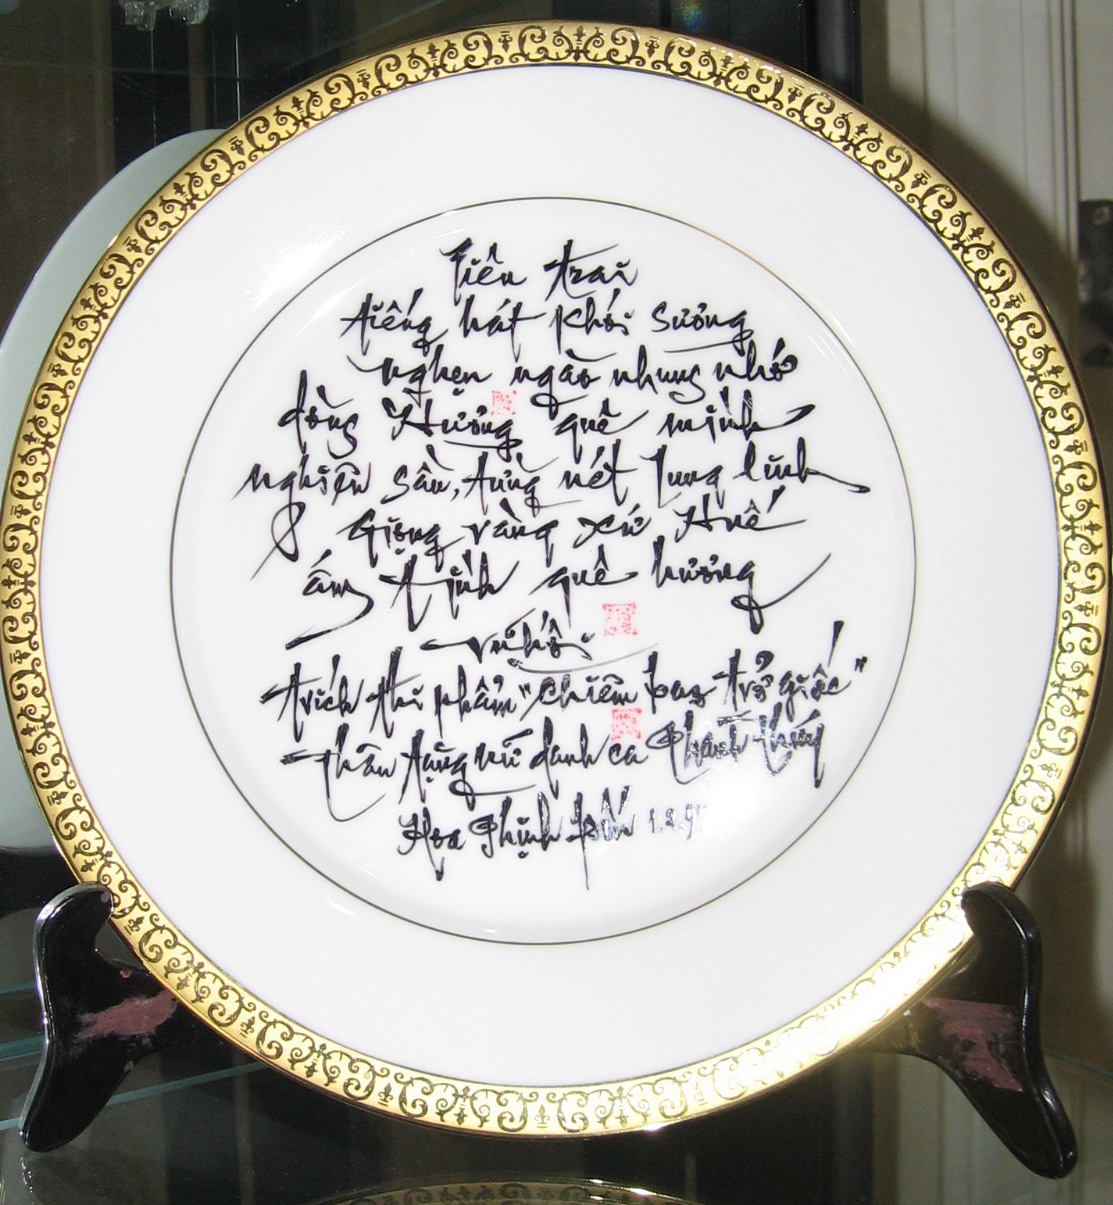 Tiền trai
tiếng hát khói sương
nghẹn ngào nhung nhớ
dòng Hương quê mình
nghiên sầu, từng nét lung linh
Giọng vàng xứ Huế
ấm tình quê hương
vũ hối
trích thi phẩm "chiêm bao trở giấc"
thân tặng nữ danh ca Thanh Thúy
Hoa Thịnh Đốn 1.8.9